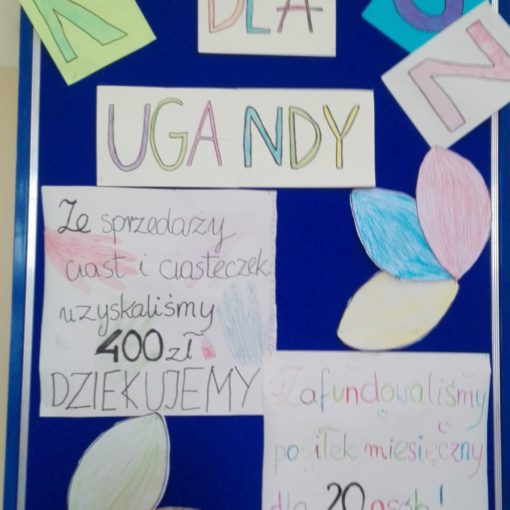 DLA
UGANDY
Ze sprzedaży
ciast i ciasteczek
uzyskaliśmy
400 zł
DZIEKUJEMY
Zafundowaliśmy
posiłek miesięczny
dla 20 osób!